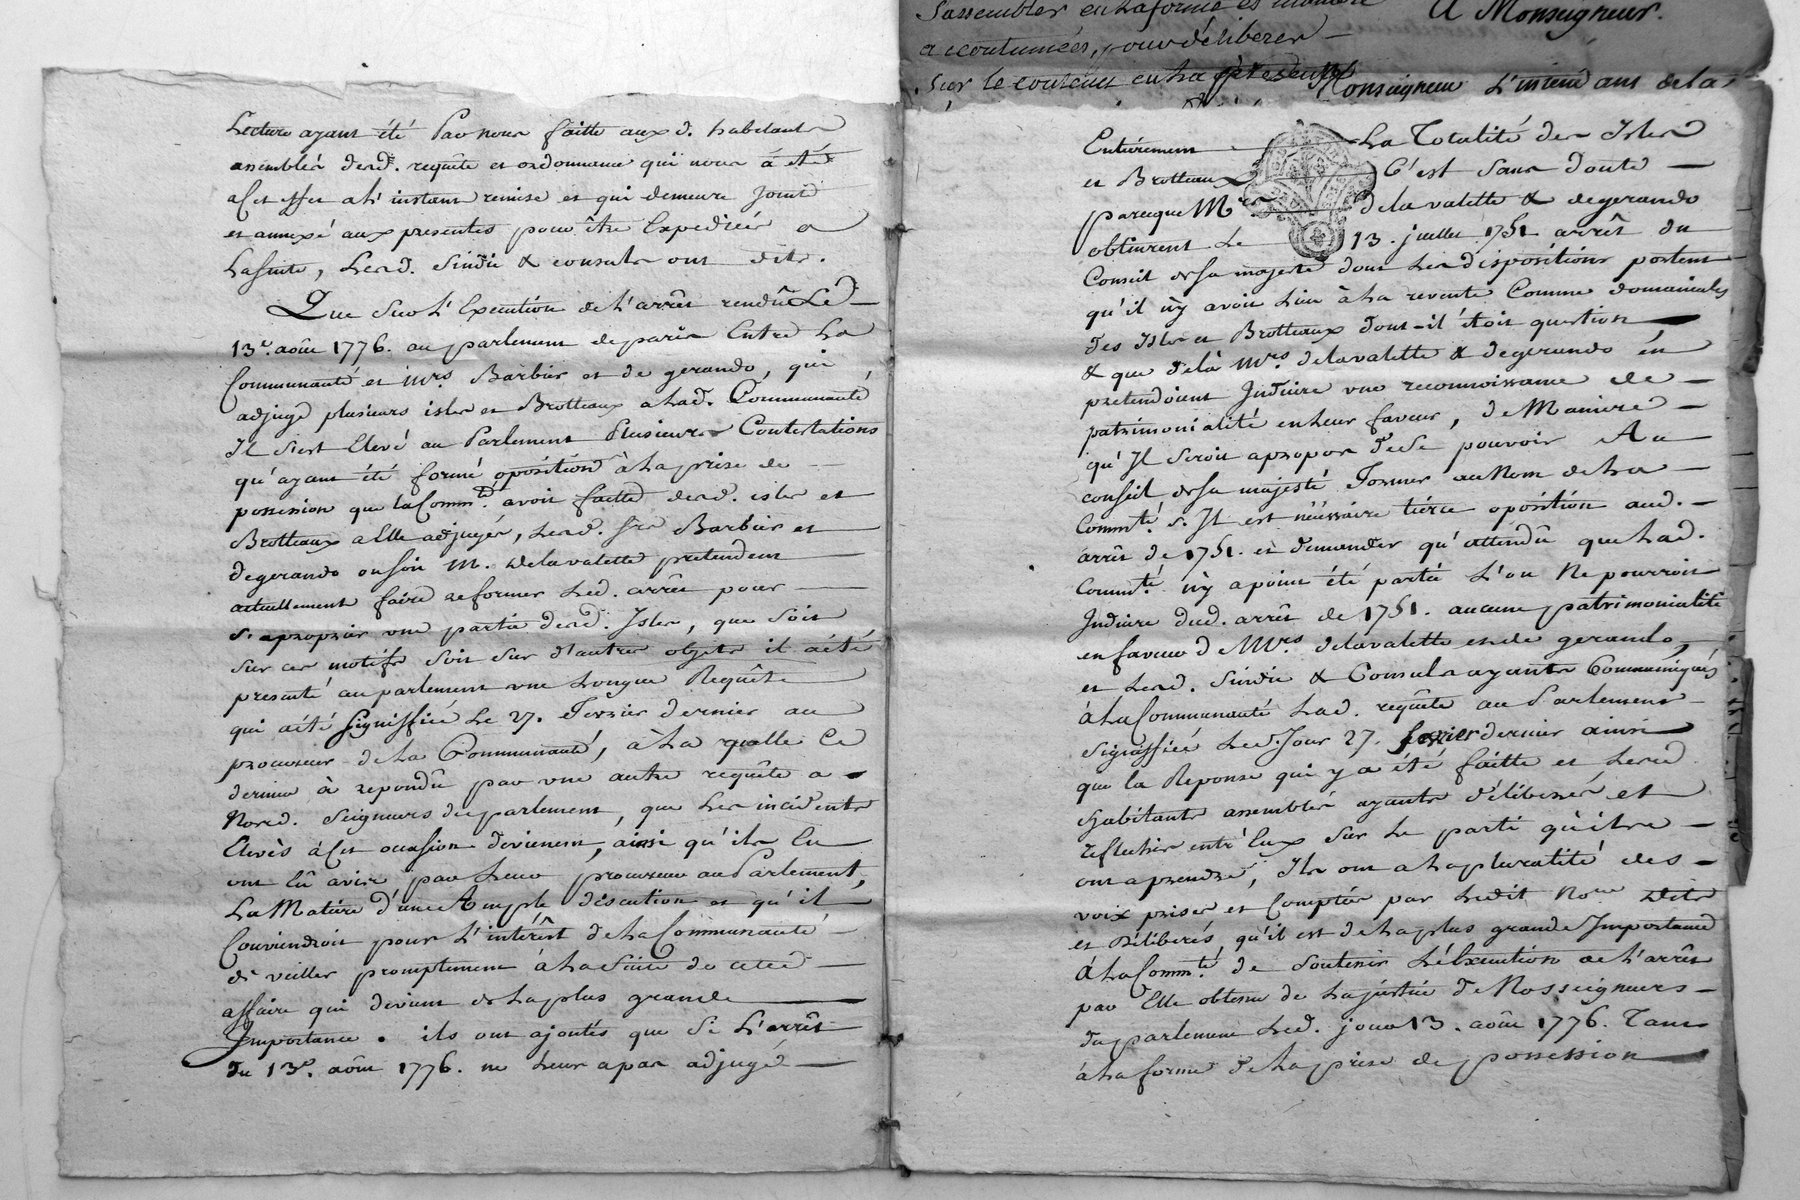 S'assembler en la forme et maniere
accoutumées, pour déliberer
Sur le contenu en la presente
A Monseigneur.
Monseigneur L'intend ant de la
Lecture ayant été Par nous faitte aux d. habitants
assemblés desd. requête et ordonnance qui nous a été
a Cet effet a L'instant remise et qui demeure Joint
et annexé aux presentes pour être Expediées a
La suite, Lesd. Sindic & consuls ont dit.
Que Sur L'Execution de L'arrêt rendû Le
13e. aôut 1776. au parlement de paris Entre La
Communauté et Mrs. Barbier et de gerando, qui
adjuge plusieurs isles et Brotteaux a Lad. Communauté
Il s'est Elevé au Parlement Plusieurs Contestations
qu'ayant été formé oposition à La prise de
possession que La Commté. avoit faitte desd. isles et
Brotteaux a Elle adjugés, Lesd. Srs Barbier et
degerando ou soit M. delavalette pretendent
actuellement faire reformer Led. arrêt pour
S'aproprier une partie desd. Isles, que Soit
sur ces motifs soit sur d'autres objets il a été
presenté au parlement une Longue Requête
qui a été signiffiée Le 27. Fevrier dernier au
procureur de La Communauté, à La quelle Ce
dernier à repondû par une autre requête a
Nosd. Seigneurs du parlement, que Les incidents
Elevés à Cet occasion devienent, ainsi qu'ils En
ont Eû avis par Leur procureur au Parlement,
La Matière d'une Ample discution et qu'il
Conviendroit pour L'intérêt de La Communauté
de veiller promptement à La Suite de cette
affaire qui devient de La plus grande
Importance. ils ont ajoutés que Si L'arrêt
du 13e. aôut 1776. ne Leur a pas adjugé
Entiérement La Totalité des Isles
et Brotteaux C'est Sans doute
parceque Mrs delavalette & degerando
obtinrent Le 13. juillet 1751 arrêt du
Conseil de sa majesté dont Les dispositions portent
qu'il n'y avoit Lieu à La revente Comme domaniales
des Isles et Brotteaux dont-il s'étoit question
& que delà Mrs. delavalette & degerando en
pretendoient Induire une reconnoissance de
patrimonialité en Leur faveur, de Maniere
qu'Il Seroit apropos de Se pouvoir Au
conseil de sa majesté Former au Nom de La
Commté. s'Il est nécessaire tierce oposition aud.
arrêt de 1751. et demander qu'attendû que Lad.
Commté. n'y a point été partie L'on Ne pourroit
Induire dud. arrêt de 1751. aucune patrimonialité
en faveur de Mrs. delavalette et de gerando,
et Lesd. Sindic & Consuls ayants Communiqués
à La Communauté Lad. requête au Parlement
Signiffiée Led. Jour 27. fevrier dernier ainsi
que la Reponse qui y a été faitte et Lesd.
Habitants assemblés ayants déliberés, et
reflechis entr'Eux Sur Le parti qu'ils
ont aprendre, Ils ont a La pluralité des
voix prises et Comptées par Ledit Nore Dits
et Déliberés, qu'il est de La plus grande Importance
à La Commté. de Soutenir L'éxecution de L'arrêt
par Elle obtenu de La justice de Nosseigneurs
du parlement Led. jour 13. aôut 1776. Tant
à La forme de La prise de possession